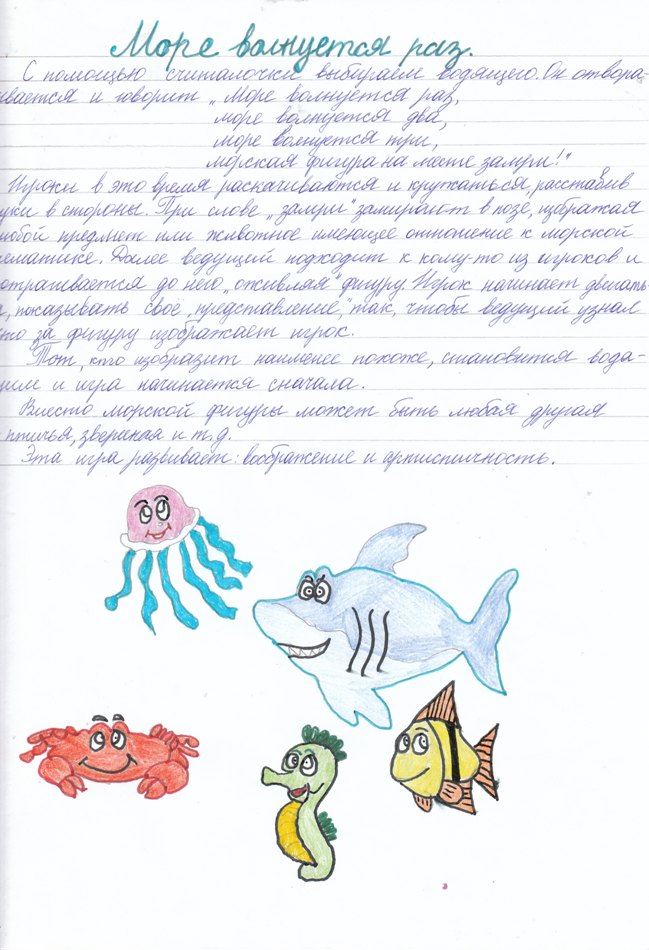 Море волнуется раз.
С помощью считалочки выбираем водящего. Он отвора-
ивается и говорит „Море волнуется раз,
море волнуется два,
море волнуется три,
морская фигура на месте замри!"
Игроки в это время раскачиваются и кружаться, расставив
уки в стороны. При слове „замри" замирают в позе, изображая
юбой предмет или животное имеющее отношение к морской
ематике. Далее ведущий подходит к кому-то из игроков и
отрагивается до него „оживляя" фигуру. Игрок начинает двигать-
я, показывать своё „представление", так, чтобы ведущий узнал
то за фигуру изображает игрок.
Тот, кто изобразит наименее похоже, становится водя-
щим и игра начинается сначала.
Вместо морской фигуры может быть любая другая
птичья, звериная и т.д.
Эта игра развивает: воображение и артистичность.